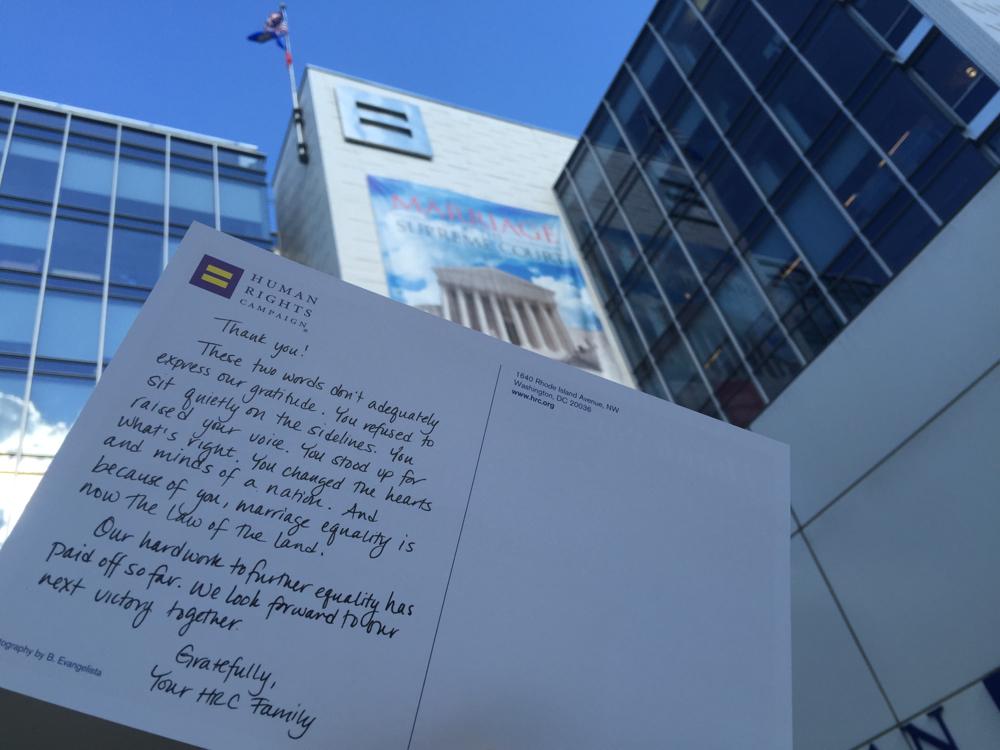 MARRIAGE
SUPREME COURT
HUMAN
RIGHTS
CAMPAIGN®
Thank you!
These two words don't adequately
express our gratitude. You refused to
sit quietly on the sidelines. You
raised your voice. You stood up for
what's right. You changed the hearts
and minds of a nation. And
because of you, marriage equality is
now the law of the land.
Our hardwork to further equality has
paid off so far. We look forward to our
next victory together.
Gratefully,
Your HRC Family
tography by B. Evangelista
1640 Rhode Island Avenue, NW
Washington, DC 20036
www.hrc.org
N